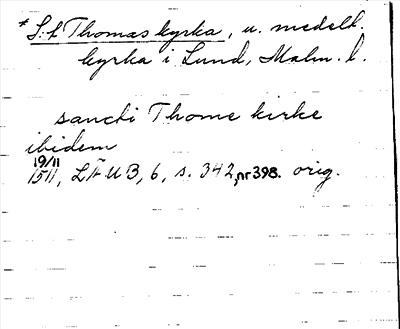 * S:t Thomas kyrka, u. medelt.
kyrka i Lund, Malm. l.
sancti Thome kirke
ibidem
19/11
1511, LÄUB, 6, s. 342, nr 398. orig.